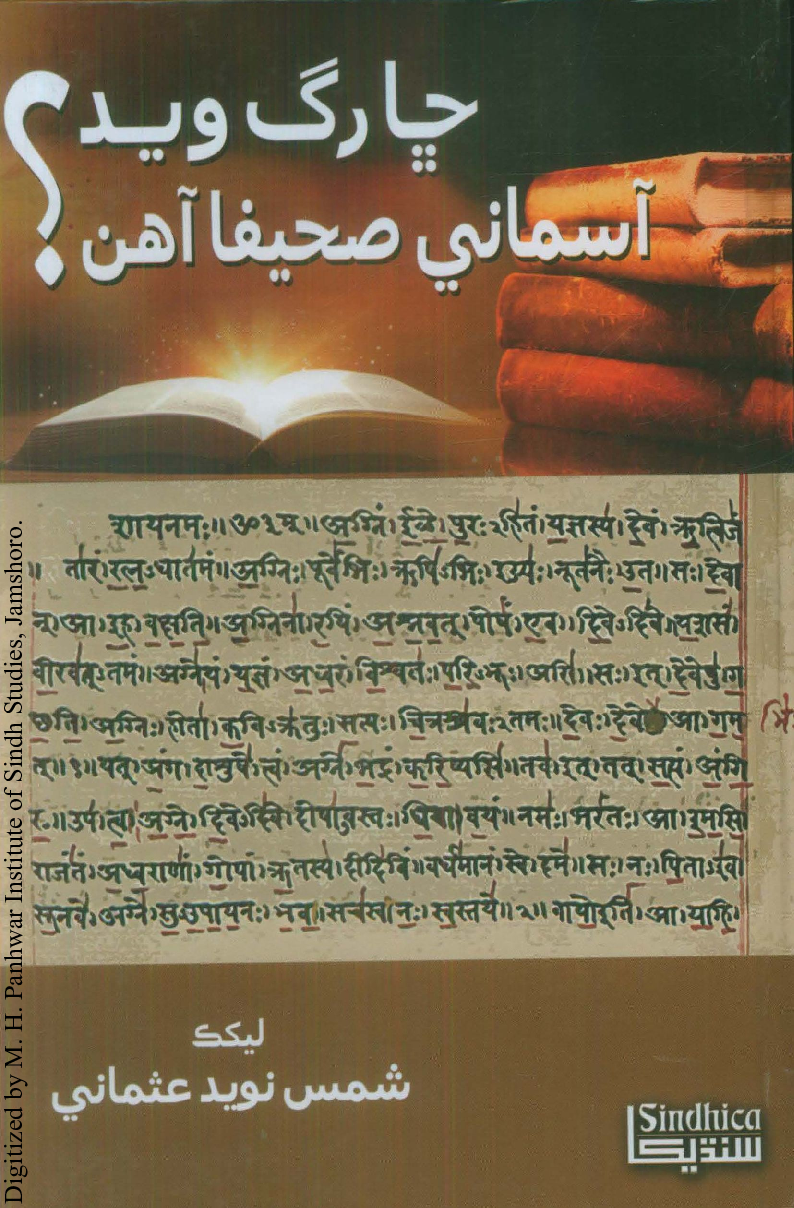 ڇا رگ ويد
آسماني صحيفا آهن؟
अग्निं। ईळे। पुरःऽहितं। यज्ञस्य। देवं। ऋत्विजं
तारं। रत्नऽधातमं॥ अग्निः। पूर्वेभिः। ऋषिऽभिः। ईड्यः। नूतनैः। उत॥ सः। देवा
न्। आ। इह। वक्षति॥ अग्निना। रयिं। अश्नवत्। पोषं। एव। दिवेऽदिवे॥ यशसं
वीरवत्ऽतमं॥ अग्ने। यं। यज्ञं। अध्वरं। विश्वतः। परिऽभूः। असि॥ सः। इत्। देवेषु। ग
च्छति। अग्निः। होता। कविऽक्रतुः। सत्यः। चित्रश्रवःऽतमः॥ देवः। आ। गम
त्॥१॥ यत्। अंग। दाशुषे। त्वं। अग्ने। भद्रं। करिष्यसि॥ तव। इत्। तत्। सत्यं। अंगि
रः॥ उप। त्वा। अग्ने। दिवेऽदिवे। दोषाऽवस्तः। धिया। वयं॥ नमः। भरंतः। आ। इमसि
राजंतं। अध्वराणां। गोपां। ऋतस्य। दीदिविं॥ वर्धमानं। स्वे। दमे॥ सः। नः। पिताऽइव
सूनवे। अग्ने। सुऽउपायनः। भव॥ सचस्व। नः। स्वस्तये॥२॥ वायो इति। आ। याहि।
ليکڪ
شمس نويد عثماني
Sindhica
سنڌيڪا
Digitized by M. H. Panhwar Institute of Sindh Studies, Jamshoro.